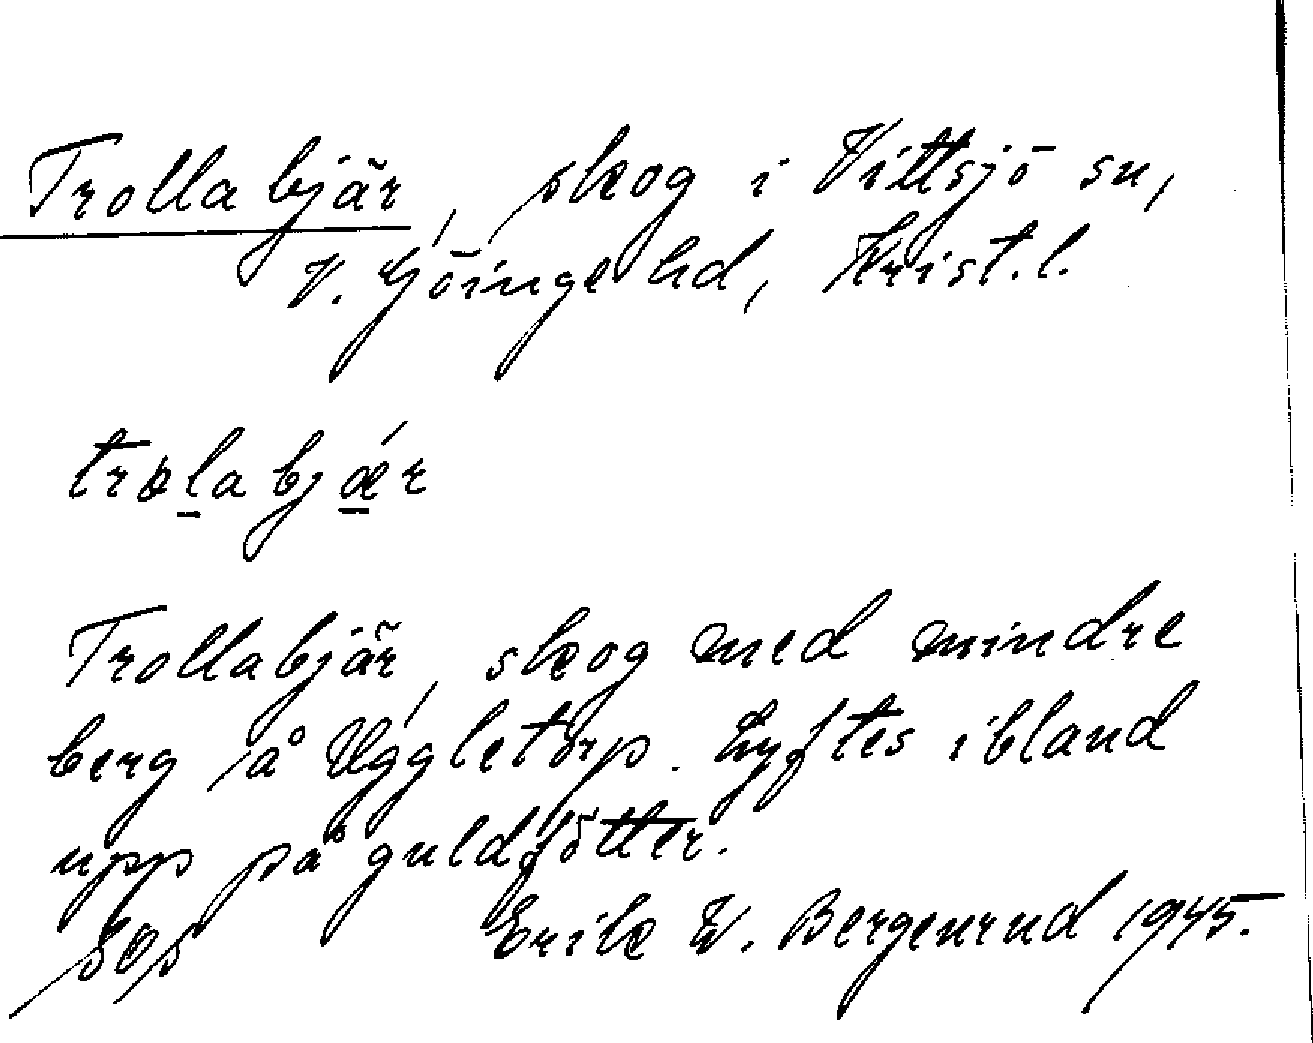 Trollabjär, skog i Vittsjö sn,
V. Göinge hd, Krist. l.
trolabjǽr
Trollabjär, skog med mindre
berg å Uggletorp. Lyftes ibland
upp på guldfötter.
Erik W. Bergenrud 1945.